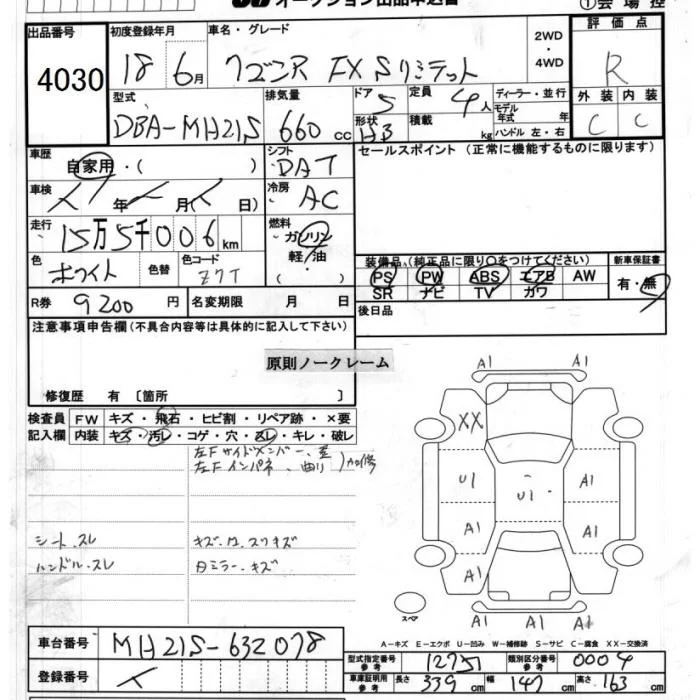 オークション出品申込書
①会場控
出品番号 初度登録年月 車名・グレード 2WD・4WD 評価点
4030 18 6月 ワゴンR FX Sリミテット R
型式 排気量 ドア 5 定員 4人 ディーラー・並行 外装 内装
DBA-MH21S 660cc 形状 HB 積載 kg モデル年式 年 C C
ハンドル 左・右
車歴 自家用・( ) シフト DAT セールスポイント (正常に機能するものに限ります)
車検 年 月( 日) 冷房 AC
走行 15万5千006km 燃料 ガソリン
軽油
( )
色 ホワイト 色替 色コード Z7T
装備品(純正品に限り〇をつけてください) 新車保証書
PS PW ABS エアB AW 有・無
SR ナビ TV カワ
R券 9200円 名変期限 月 日 後日品
注意事項申告欄(不具合内容等は具体的に記入して下さい)
原則ノークレーム
修復歴 有 〔箇所 〕
検査員 FW キズ・飛石・ヒビ割・リペア跡・×要
記入欄 内装 キズ・汚レ・コゲ・穴・スレ・キレ・破レ
左Fサイドメンバー、歪
左Fインパネ、曲り
シート、スレ
ハンドル、スレ
A1 A1
XX
U1 U1 A1
A1 A1
A1
A1 A1 A1
スペア
A-キズ E-エクボ U-凹み W-補修跡 S-サビ C-腐食 XX-交換済
車台番号 MH21S-632078
登録番号
型式指定番号 参考 12751 類別区分番号 参考 0004
車庫証明用 参考 長さ 339cm 幅 147cm 高さ 163cm